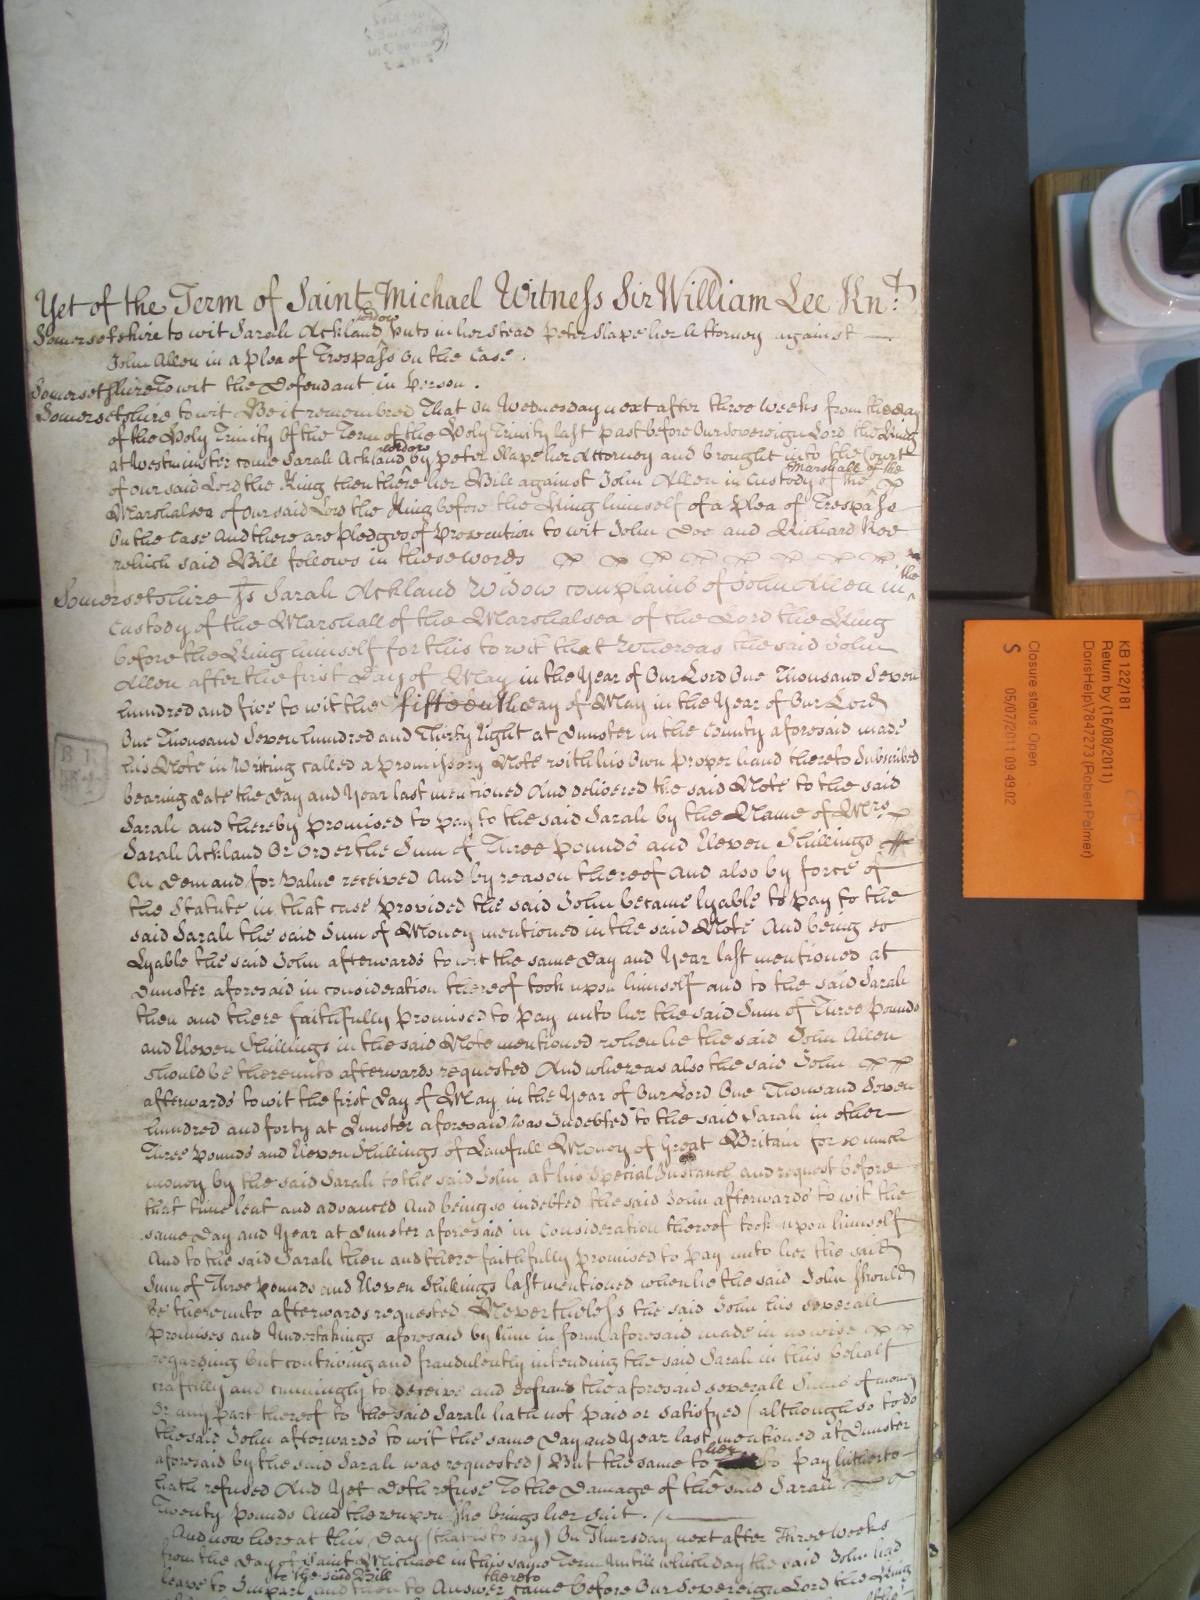 Yet of the Term of Saint Michael Witness Sir William Lee Knt.
Somersetshire to wit Sarah Ackland widow puts in her stead Peter Slape her Attorney against
John Allen in a Plea of Trespass on the Case.
Somersetshire to wit the Defendant in Person.
Somersetshire to wit Be it remembred That On Wednesday next after three Weeks from the day
of the Holy Trinity Of the Term of the Holy Trinity last past before Our Sovereign Lord the King
at Westminster came Sarah Ackland widow by Peter Slape her Attorney and brought into the Court
of our said Lord the King then there her Bill against John Allen in Custody of the Marshall of the
Marshalsea of our said Lord the King before the King himself of a plea of Trespass
On the Case And there are pledges of Prosecution to wit John Doe and Richard Roe
which said Bill follows in these words
Somersetshire Ss Sarah Ackland Widow complains of John Allen in the
Custody of the Marshall of the Marshalsea of the Lord the King
before the King himself for this to wit that Whereas the said John
Allen after the first Day of May in the Year of Our Lord One Thousand Seven
hundred and five to wit the fifteenth day of May in the Year of Our Lord
One Thousand Seven hundred and Thirty Eight at Dunster in the County aforesaid made
his Note in Writing called a promissory Note with his Own Proper hand thereto Subscribed
bearing date the Day and Year last mentioned And delivered the said Note to the said
Sarah and thereby promised to pay to the said Sarah by the Name of Mrs
Sarah Ackland Or Order the Sum of Three pounds and Eleven Shillings
On Demand for Value received And by reason thereof And also by force of
the Statute in that case provided the said John became lyable to pay to the
said Sarah the said Sum of Money mentioned in the said Note And being so
Lyable the said John afterwards to wit the same Day and Year last mentioned at
Dunster aforesaid in consideration thereof took upon himself and to the said Sarah
then and there faithfully promised to pay unto her the said Sum of Three Pounds
and Eleven Shillings in the said Note mentioned when he the said John Allen
should be thereunto afterwards requested And whereas also the said John
afterwards to wit the first Day of May in the Year of Our Lord One Thousand Seven
hundred and forty at Dunster aforesaid was Indebted to the said Sarah in other
Three Pounds and Eleven Shillings of Lawfull Money of Great Britain for so much
money by the said Sarah to the said John at his Special Instance and request before
that time lent and advanced And being so indebted the said John afterwards to wit the
same Day and Year at Dunster aforesaid in Consideration thereof took upon himself
And to the said Sarah then and there faithfully promised to pay unto her the said
Sum of Three pounds and Eleven Shillings last mentioned when he the said John should
be thereunto afterwards requested Nevertheless the said John his severall
Promises and Undertakings aforesaid by him in form aforesaid made in no wise
regarding but contriving and fraudulently intending the said Sarah in this behalf
craftily and cunningly to deceive and defraud the aforesaid severall Sums of money
Or any part thereof to the said Sarah hath not paid or satisfyed (although so to do
the said John afterwards to wit the same Day and Year last mentioned at Dunster
aforesaid by the said Sarah was requested) But the same to her to pay hitherto
hath refused And Yet doth refuse To the Damage of the said Sarah
Twenty pounds And thereupon she brings her suit.
And now here at this Day (that is to say) On Thursday next after Three Weeks
from the day of Saint Michael in this same Term Untill which day the said John had
leave to Imparl to the said Bill and then to Answer thereto came before Our Sovereign Lord the King
KB 122/181
Return by (16/08/2011)
DorisHelp\7847273 (Robert Palmer)
Closure status Open
S
05/07/2011 09:49:02